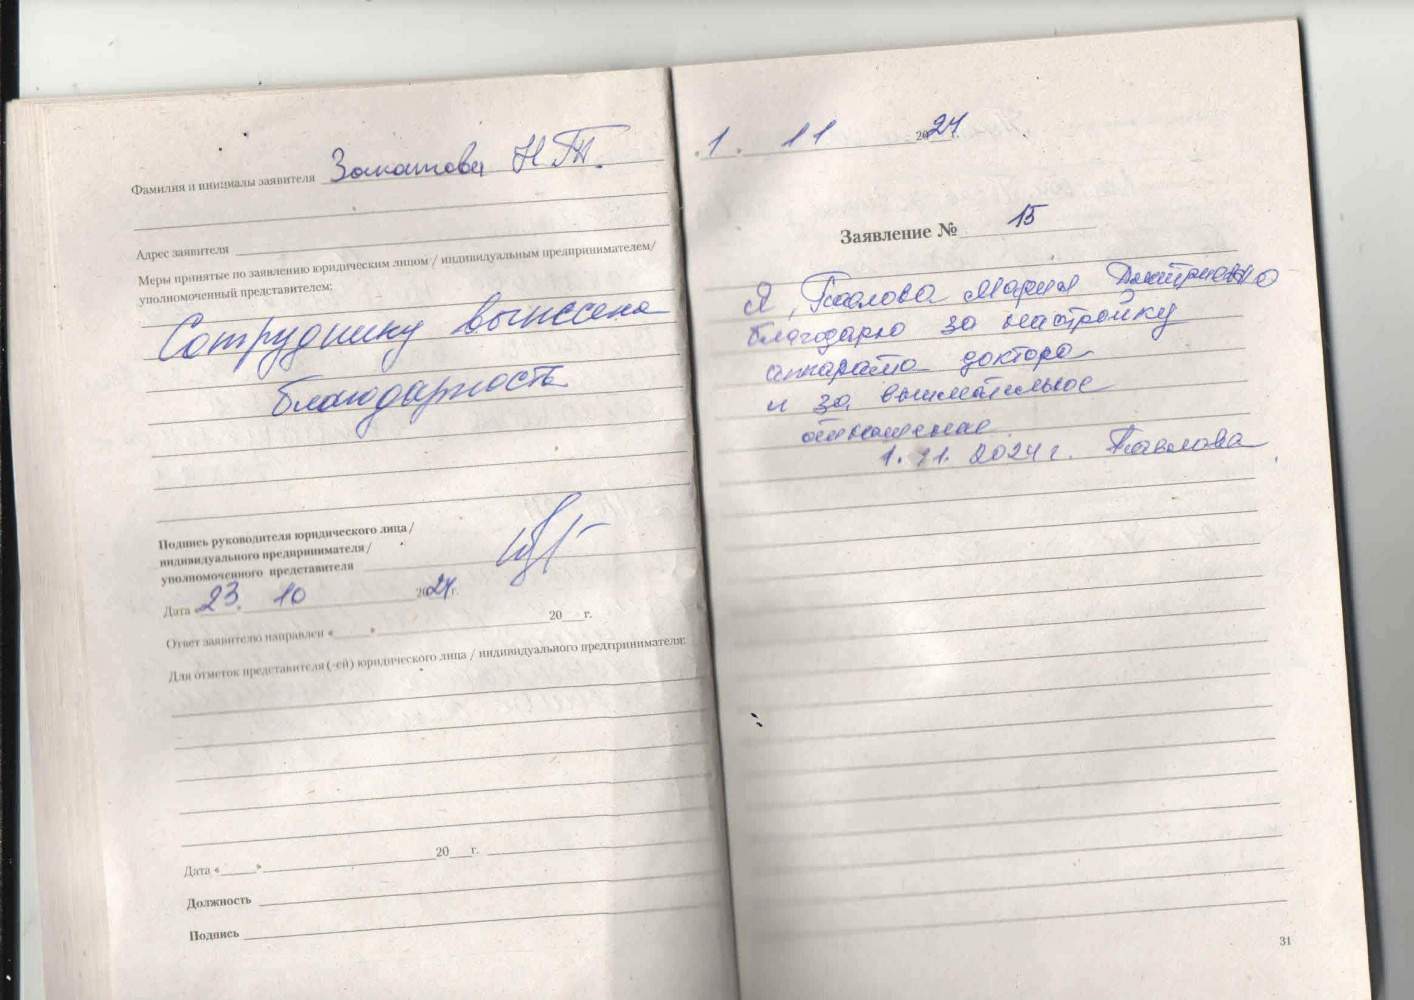 Фамилия и инициалы заявителя Закатова Н.Т.
Адрес заявителя
Меры принятые по заявлению юридическим лицом / индивидуальным предпринимателем/
уполномоченный представителем:
Сотруднику вынесена
благодарность
Подпись руководителя юридического лица /
индивидуального предпринимателя /
уполномоченного представителя
Дата «23. 10 2024г.
Ответ заявителю направлен «____»____20___г.
Для отметок представителя (-ей) юридического лица / индивидуального предпринимателя:
Дата «____»____20___г.
Должность
Подпись
1. 11 2024 г.
Заявление № 15
Я, Павлова Мария Дмитриевна
благодарю за настройку
аппарата доктора
и за внимательное
отношение.
1. 11. 2024 г. Павлова
31